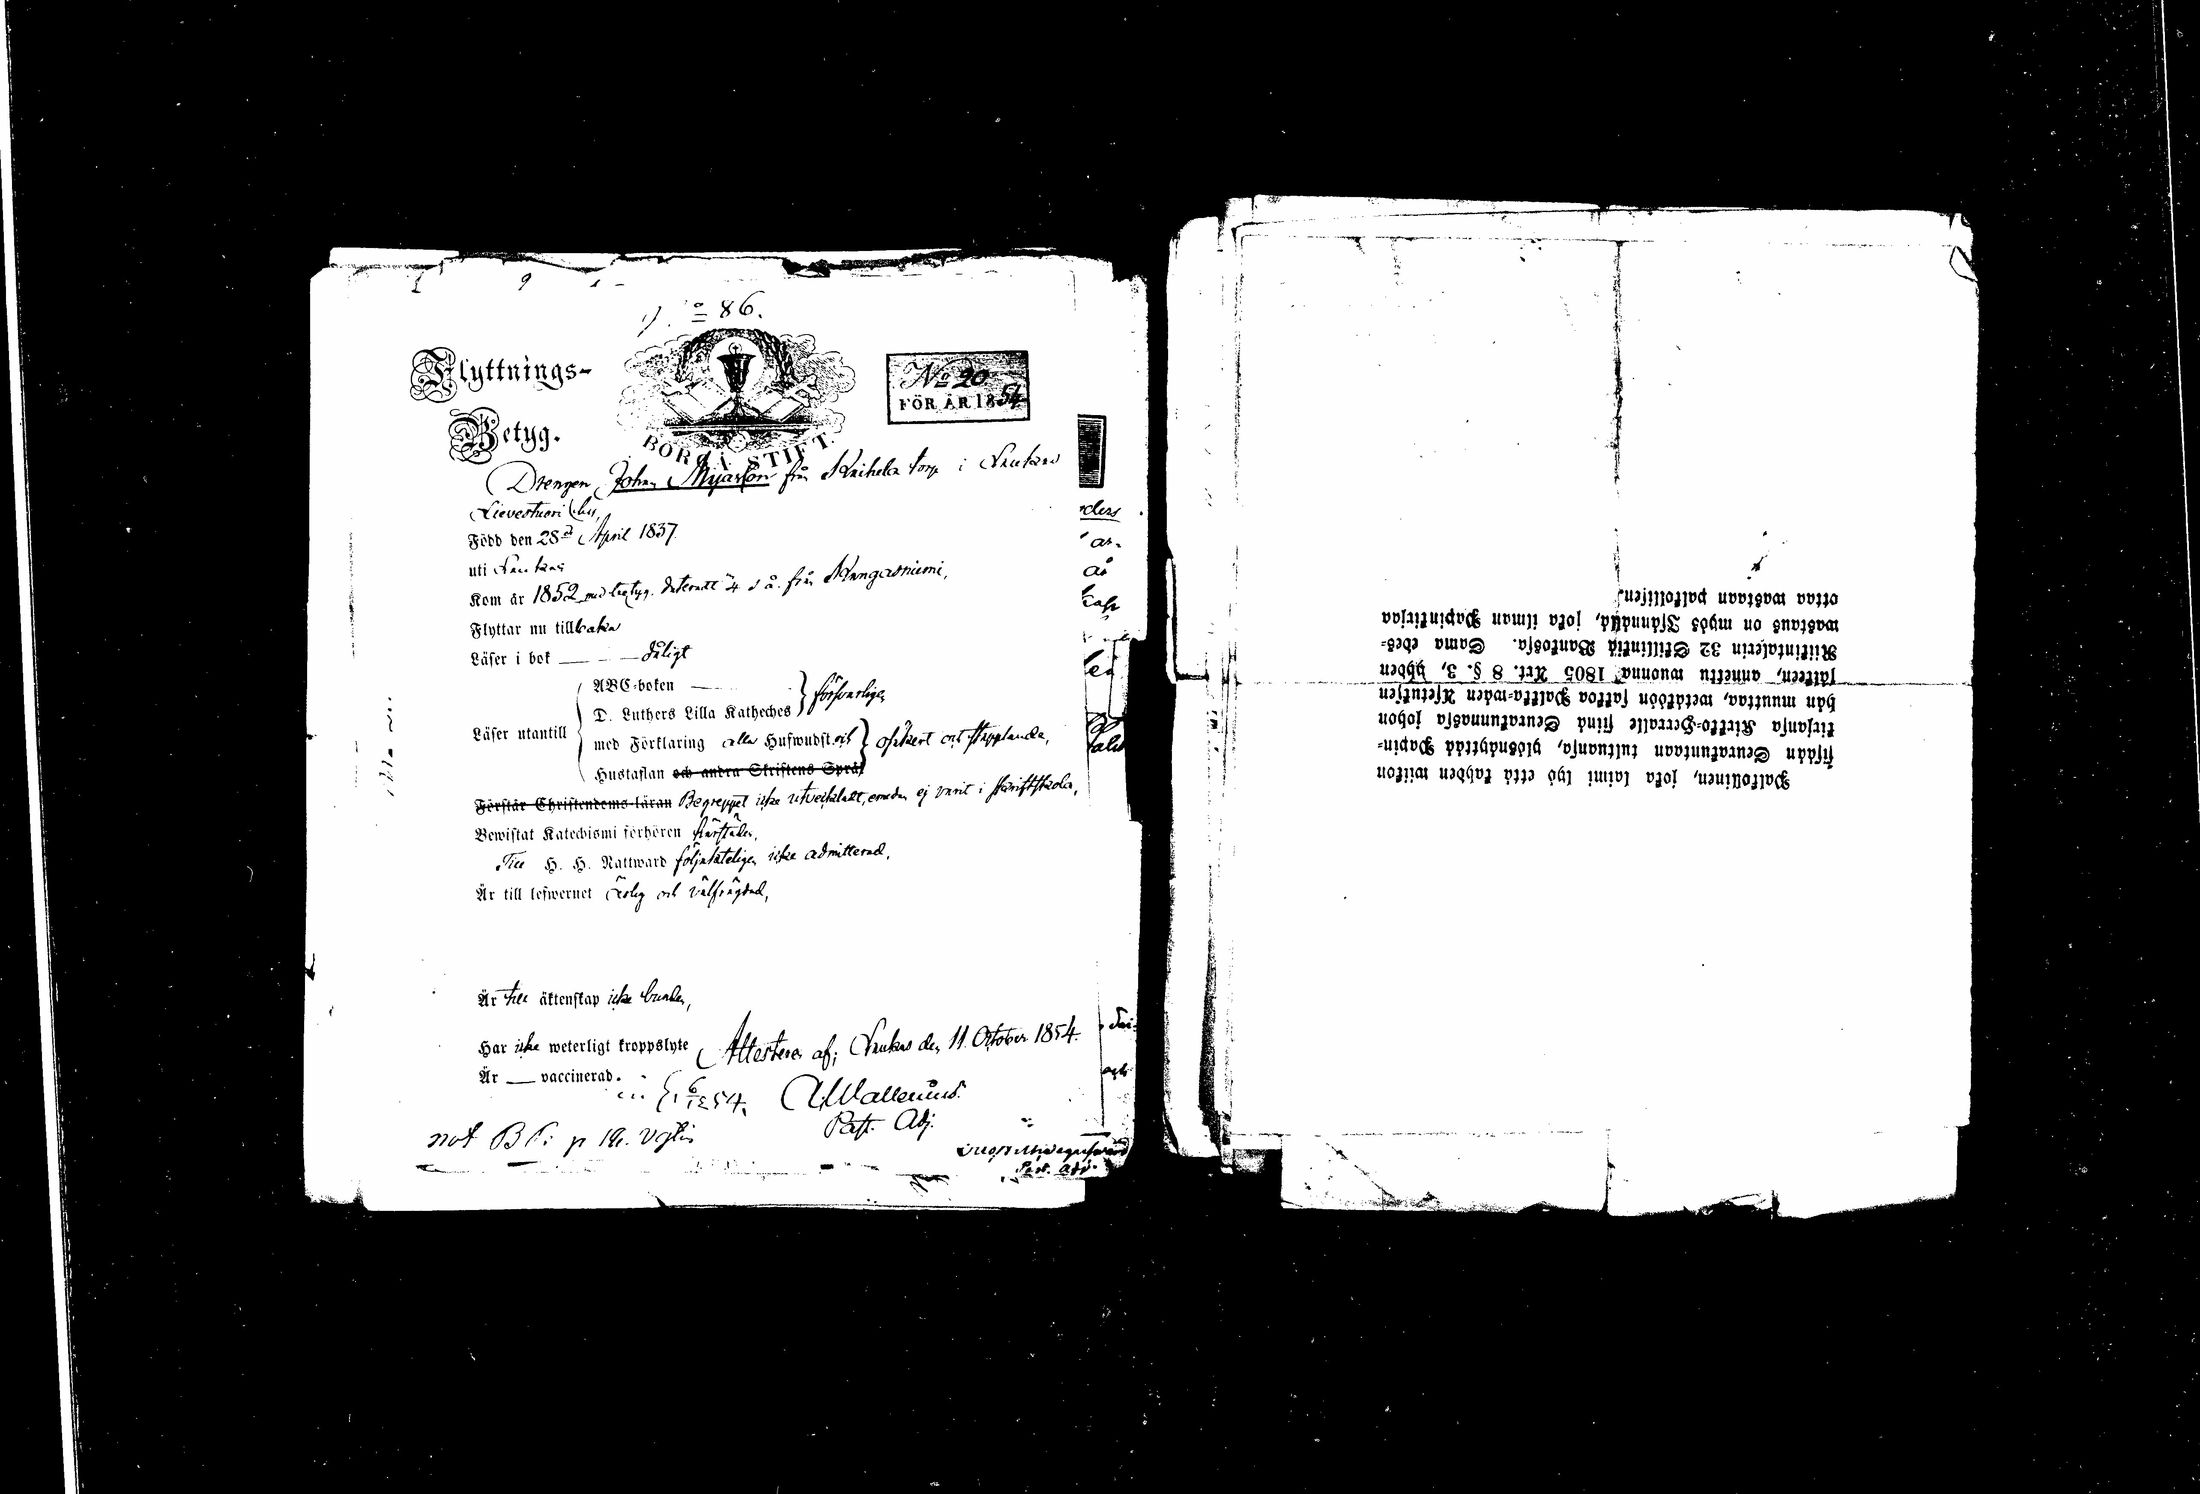 No 86.
Flyttnings-
Betyg.
BORGÅ STIFT.
No 20
FÖR ÅR 1854
Drengen Johan Mijarson från Knihela torp i Laukas
Lievestuori by,
Född den 28de April 1837.
uti Laukas
Kom år 1852 med betyg, dateradt å. från Kangasniemi,
Flyttar nu tillbaka
Läser i bok — — — dåligt
ABC-boken —
D. Luthers Lilla Katheches } försvarligen
Läser utantill
med Förklaring alla Hufwudst. och } osäkert och stapplande,
Hustaflan och andra Skriftens Språk
Förstår Christendoms-läran Begreppet icke utveckladt, emedan ej varit i skriftskola,
Bewistat Katechismi förhören
Till H. H. Nattward följakteligen icke admitterad,
Är till lefwernet ärlig och välfrägdad,
Är till äktenskap icke bunden,
Har icke weterligt kroppslyte
Attesteras af; Laukas den 11 October 1854.
Är — vaccinerad.
A. Wallenius.
Past. Adj.
not B
Past. Adj.
Palkollinen, joka laimi lyö että kahden wiikon
sisään Seurakuntaan tultuansa, ylösnäyttää Papin-
kirjansa Kirkko-Herralle siinä Seurakunnassa johon
hän muuttaa, wetätöön sakkoa Palkka-wäen Asetuksen
jälkeen, annettu wuonna 1805 Art. 8 §. 3, yhden
Riikintalerin 32 Skillinkiä Bankossa. Sama edes-
wastaus on myös Isännällä, joka ilman Papinkirjaa
ottaa wastaan palkollisen.